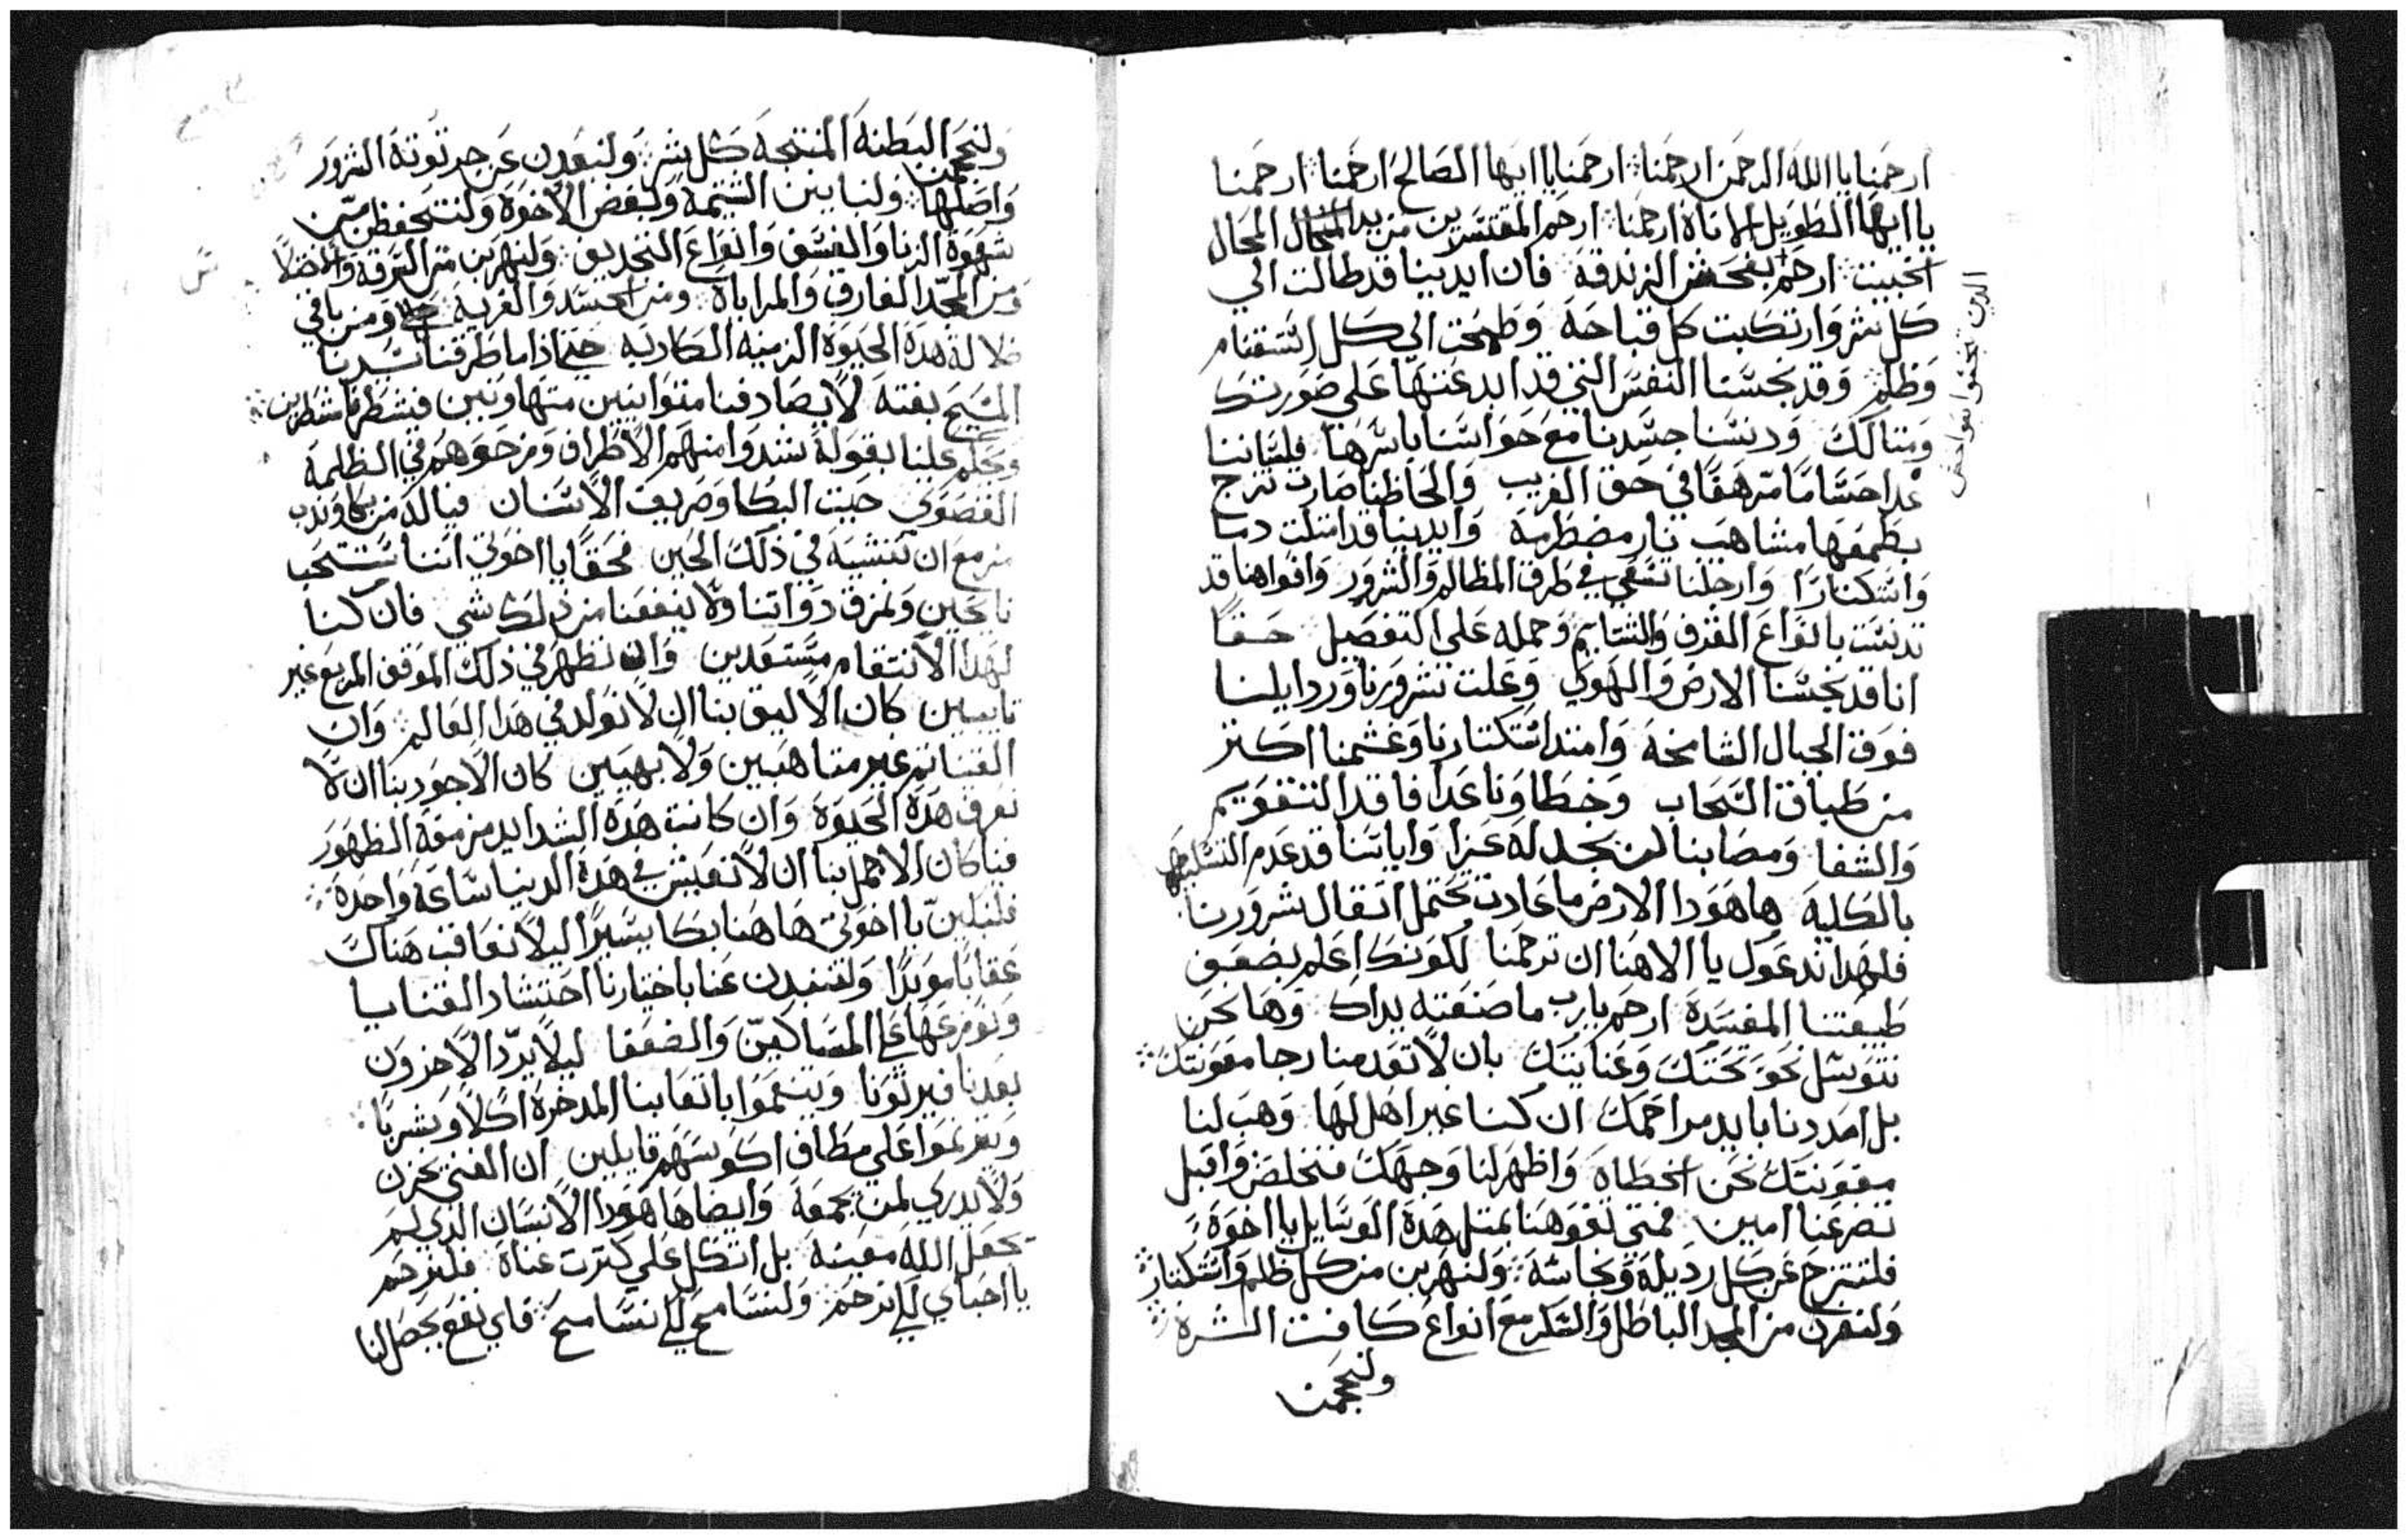 ارحمنا يا الله الرحمن ارحمنا ارحمنا يا ايها الصالح ارحمنا ارحمنا
يا ايها الطويل الاناة ارحمنا ارحم المفتسرين من يد المحال
الخبيث ارحم بفحش الزندقة فان ايدينا قد طالت الي
كل شر وارتكبت كل قباحة وطمحت الي كل انتقام
وظلم وقد نجسنا النفس التي قد ابدعتها علي صورتك
ومتالك ودنسنا جسدنا مع حواسنا باسرها فلساننا
غدا حساما مرهفا في حق القريب والحاظنا صارت تزج
بطمعها مشاهب نار مضطرمة وايدينا قد امتلت دما
واستكنارا وارجلنا تسعي في طرق المظالم والشرور وافواهنا قد
تدنست بانواع القذف والشتايم وجمله علي التفصيل حقا
انا قد نجسنا الارض والهوي وعلت شرورنا وردايلنا
فوق الجبال الشامخة وامتد استكنارنا وغشمنا اكتر
من طباق السحاب وخطاونا غدا فاقد التقويم
والشفا ومصابنا لن يجد له عزا واباتنا قد عدم التسليط
بالكلية ها هودا الارض ما عادت تحتمل اتقال شرورنا
فلهدا ندعوك يا الاهنا ان ترحمنا لكونك اعلم بضعف
طبيعتنا المفسدة ارحم يا رب ما صنعته يداك وها نحن
نتوسل نحو تحننك وعنايتك بان لا تعدمنا رجا معونتك
بل امددنا بايد مراحمك ان كنا غير اهل لها وهب لنا
معونتك نحن الخطاة واظهر لنا وجهك فنخلص واقبل
تضرعنا امين فمتي تفوهنا بمتل هدة الوسايل يا اخوة
فلننزح عن كل رديلة ونجاسة ولنهربن من كل ظلم واستكنار
ولنفرن من المجد الباطل والسكر مع انواع كافت الشرة
ولنجحمن
الدين تجفوا بفواحش
ولنجحمن البطنة المنتجة كل شر ولنبعدن عن جرتوتة الشرور
واصلها ولنباينن الشتيمة ولبغض الاخوة ولنتحفظن من
شهوة الزنا والفسق وانواع التجديف ولنهربن من السرقة
ومن المجد الفارق والمراياة ومن الحسد والفرية ومن باقي
ضلالة هدة الحيوة الزمنية الكاربة حتي اذا ما طرقنا سيدنا
المسيح بغتة لا يصادفنا متوانيين متهاونين فيشطرنا شطرين
ويحكم علينا بقوله شدوا منهم الاطراف وزجوهم في الظلمة
القصوي حيت البكا وصريف الاسنان فيا له من بكا وندب
مزمع ان ننشبة في ذلك الحين فحقا يا اخوتي اننا سننتحب
نايحين ونمزق دواتنا ولا ينفعنا من ذلك شي فان كنا
لهدا الانتقام مستعدين وان نظهر في ذلك الموقف المريع غير
تايبين كان الاليق بنا ان لا نولد في هدا العالم وان
الفينا تم غير متاهبين ولا بهيين كان الاجود بنا ان لا
نعرف هدة الحيوة وان كانت هدة الشدايد مزمعة الظهور
فينا كان الاجمل بنا ان لا نعيش في هدة الدنيا ساعة واحدة
فلنبكين يا اخوتي ها هنا بكا يسيرا ليلا نعاقب هناك
عقابا موبدا ولنبعدن عنا باختيارنا احتشاد القنايا
ونوزعها علي المساكين والضعفا ليلا يرد الاخرون
بعدنا فيرتونا ويتنعموا باتعابنا المدخرة اكلا وشربا
ويترنموا علي مطاف اكوسهم قايلين ان الغني يخزن
ولا يدري لمن يجمعة وايضا ها هودا الانسان الدي لم
يجعل الله معينه بل اتكل علي كترت غناة فلنرحم
يا احباي لكي نرحم ولنسامح لكي نسامح فاي نفع يحصل لنا